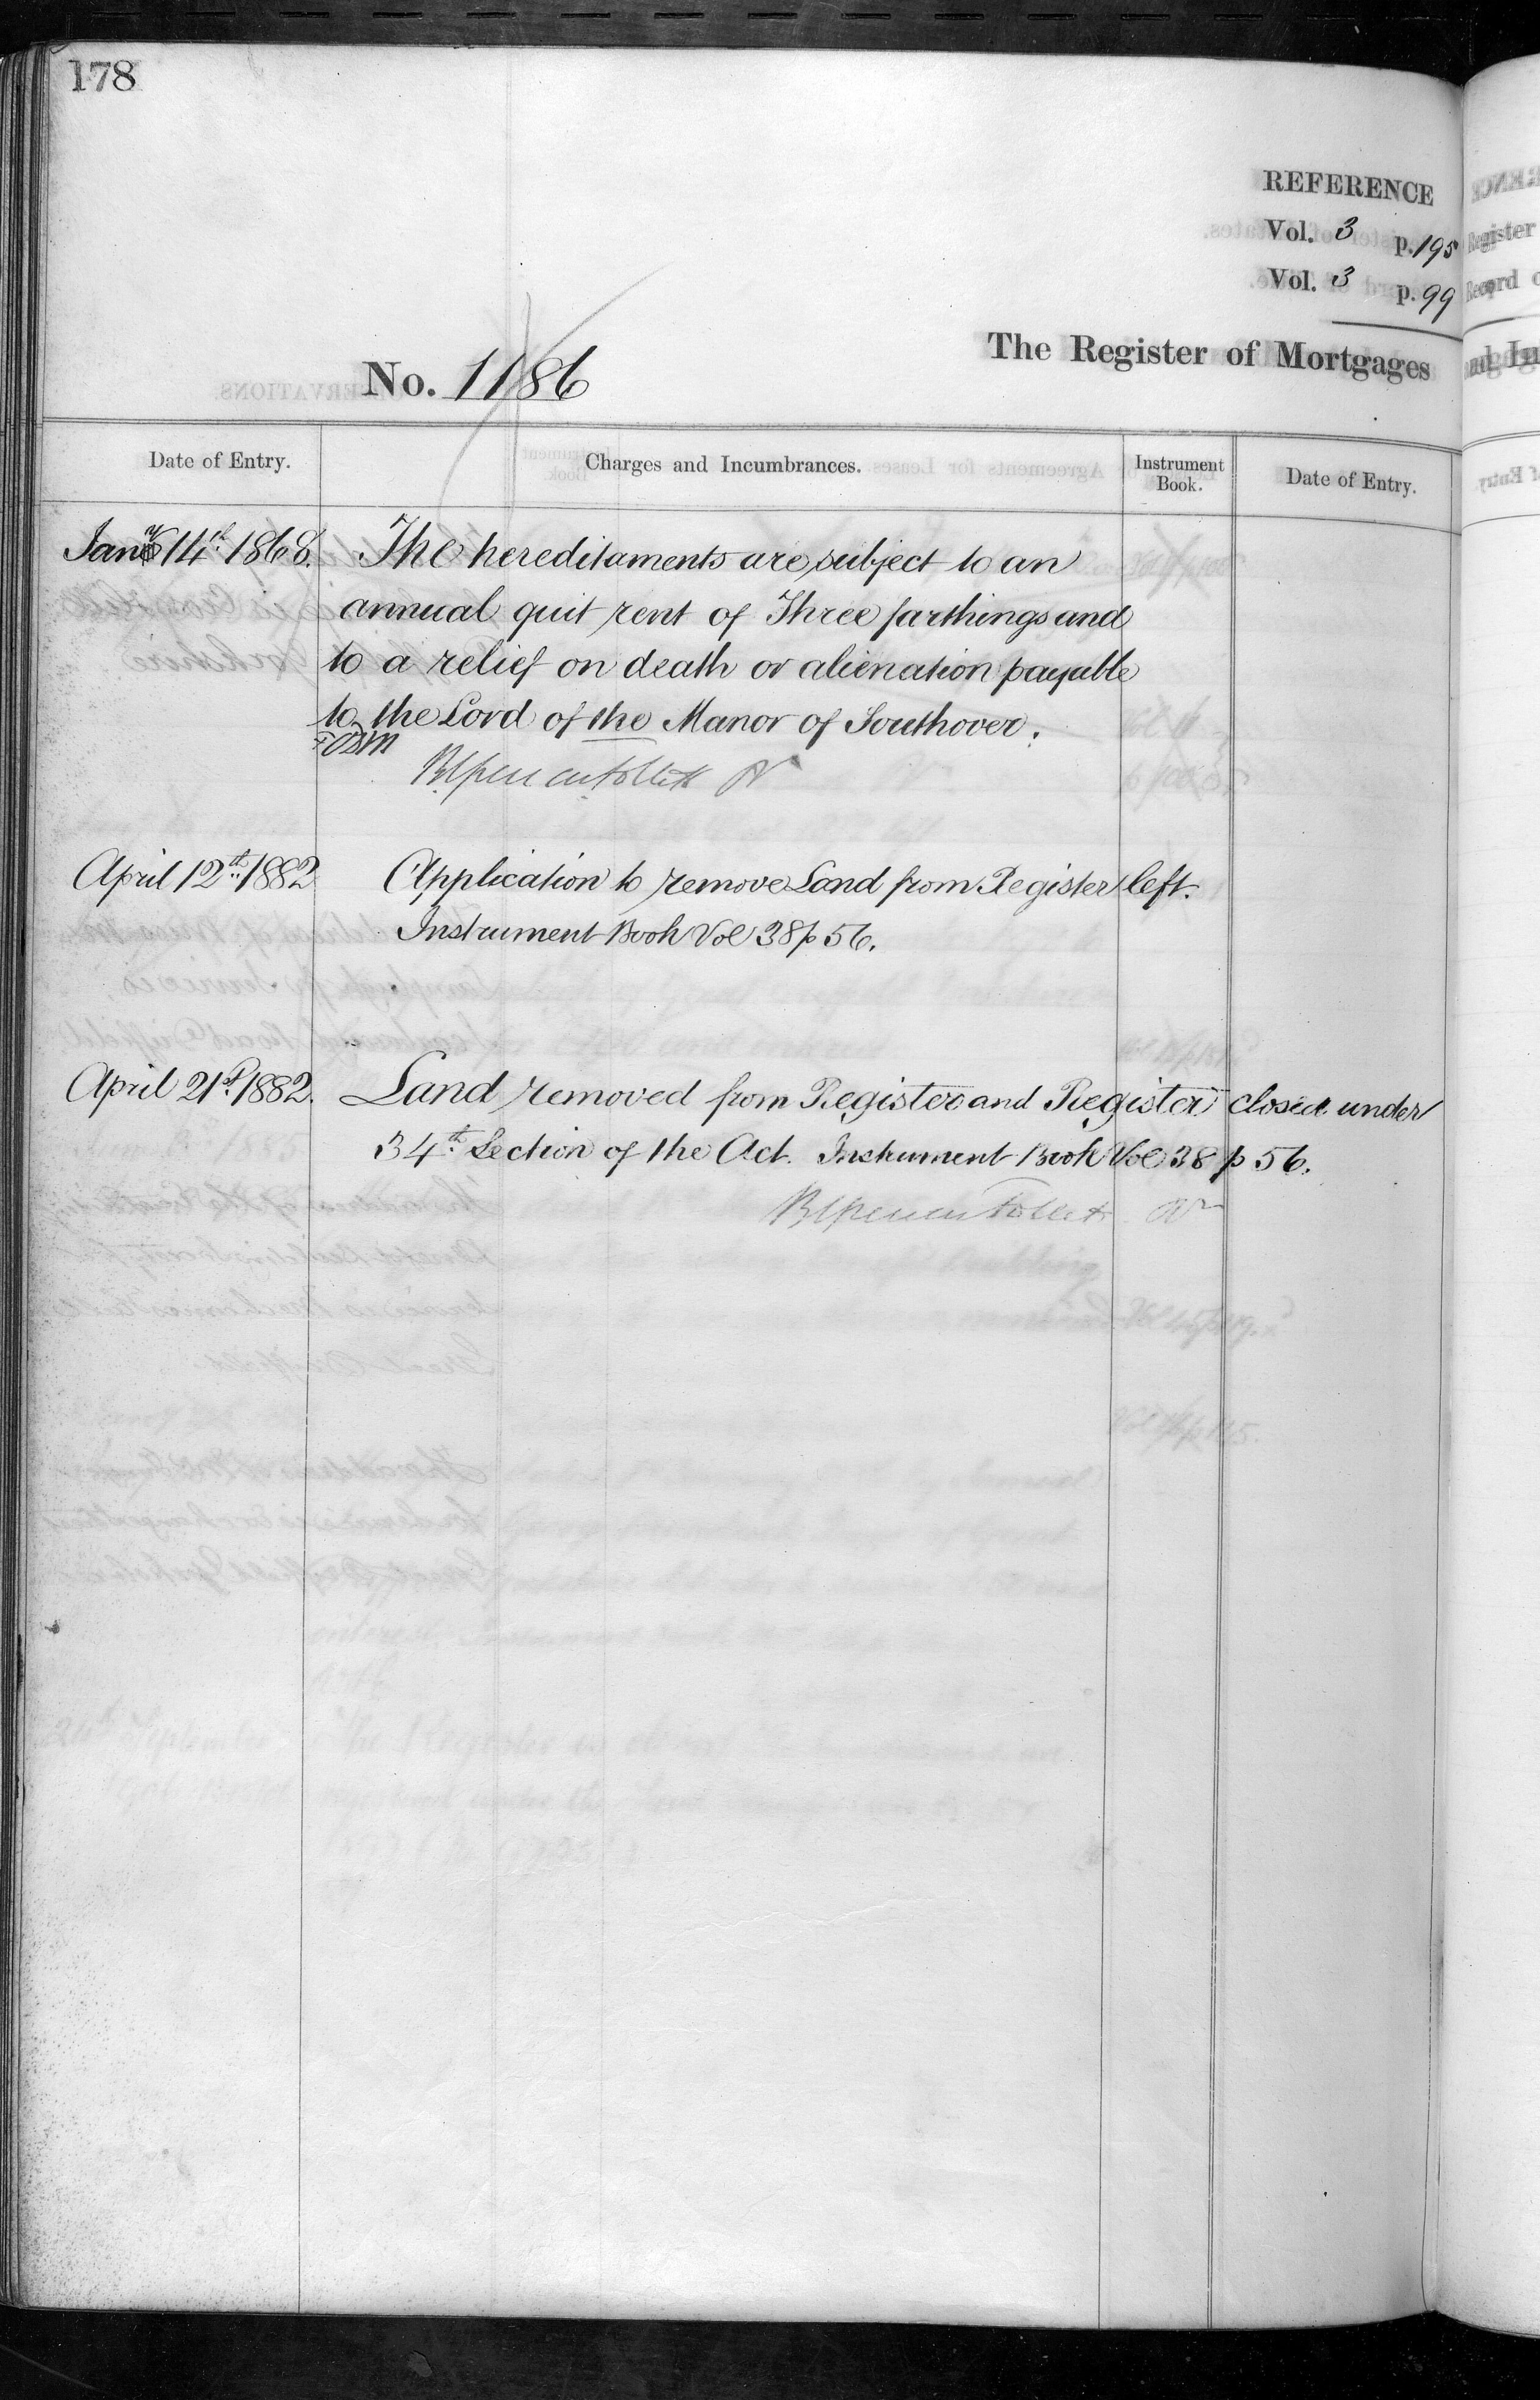 178
REFERENCE
Vol. 3 p. 195
Vol. 3 p. 99
No. 1186
The Register of Mortgages
Date of Entry.
Charges and Incumbrances.
Instrument Book.
Date of Entry.
Jany 14th 1868. The hereditaments are subject to an
annual quit rent of Three farthings and
to a relief on death or alienation payable
to the Lord of the Manor of Southover.
April 12th 1882 Application to remove Land from Register left.
Instrument Book Vol 38 p 56.
April 21st 1882. Land removed from Register and Register closed under
34th Section of the Act. Instrument Book Vol 38 p 56.